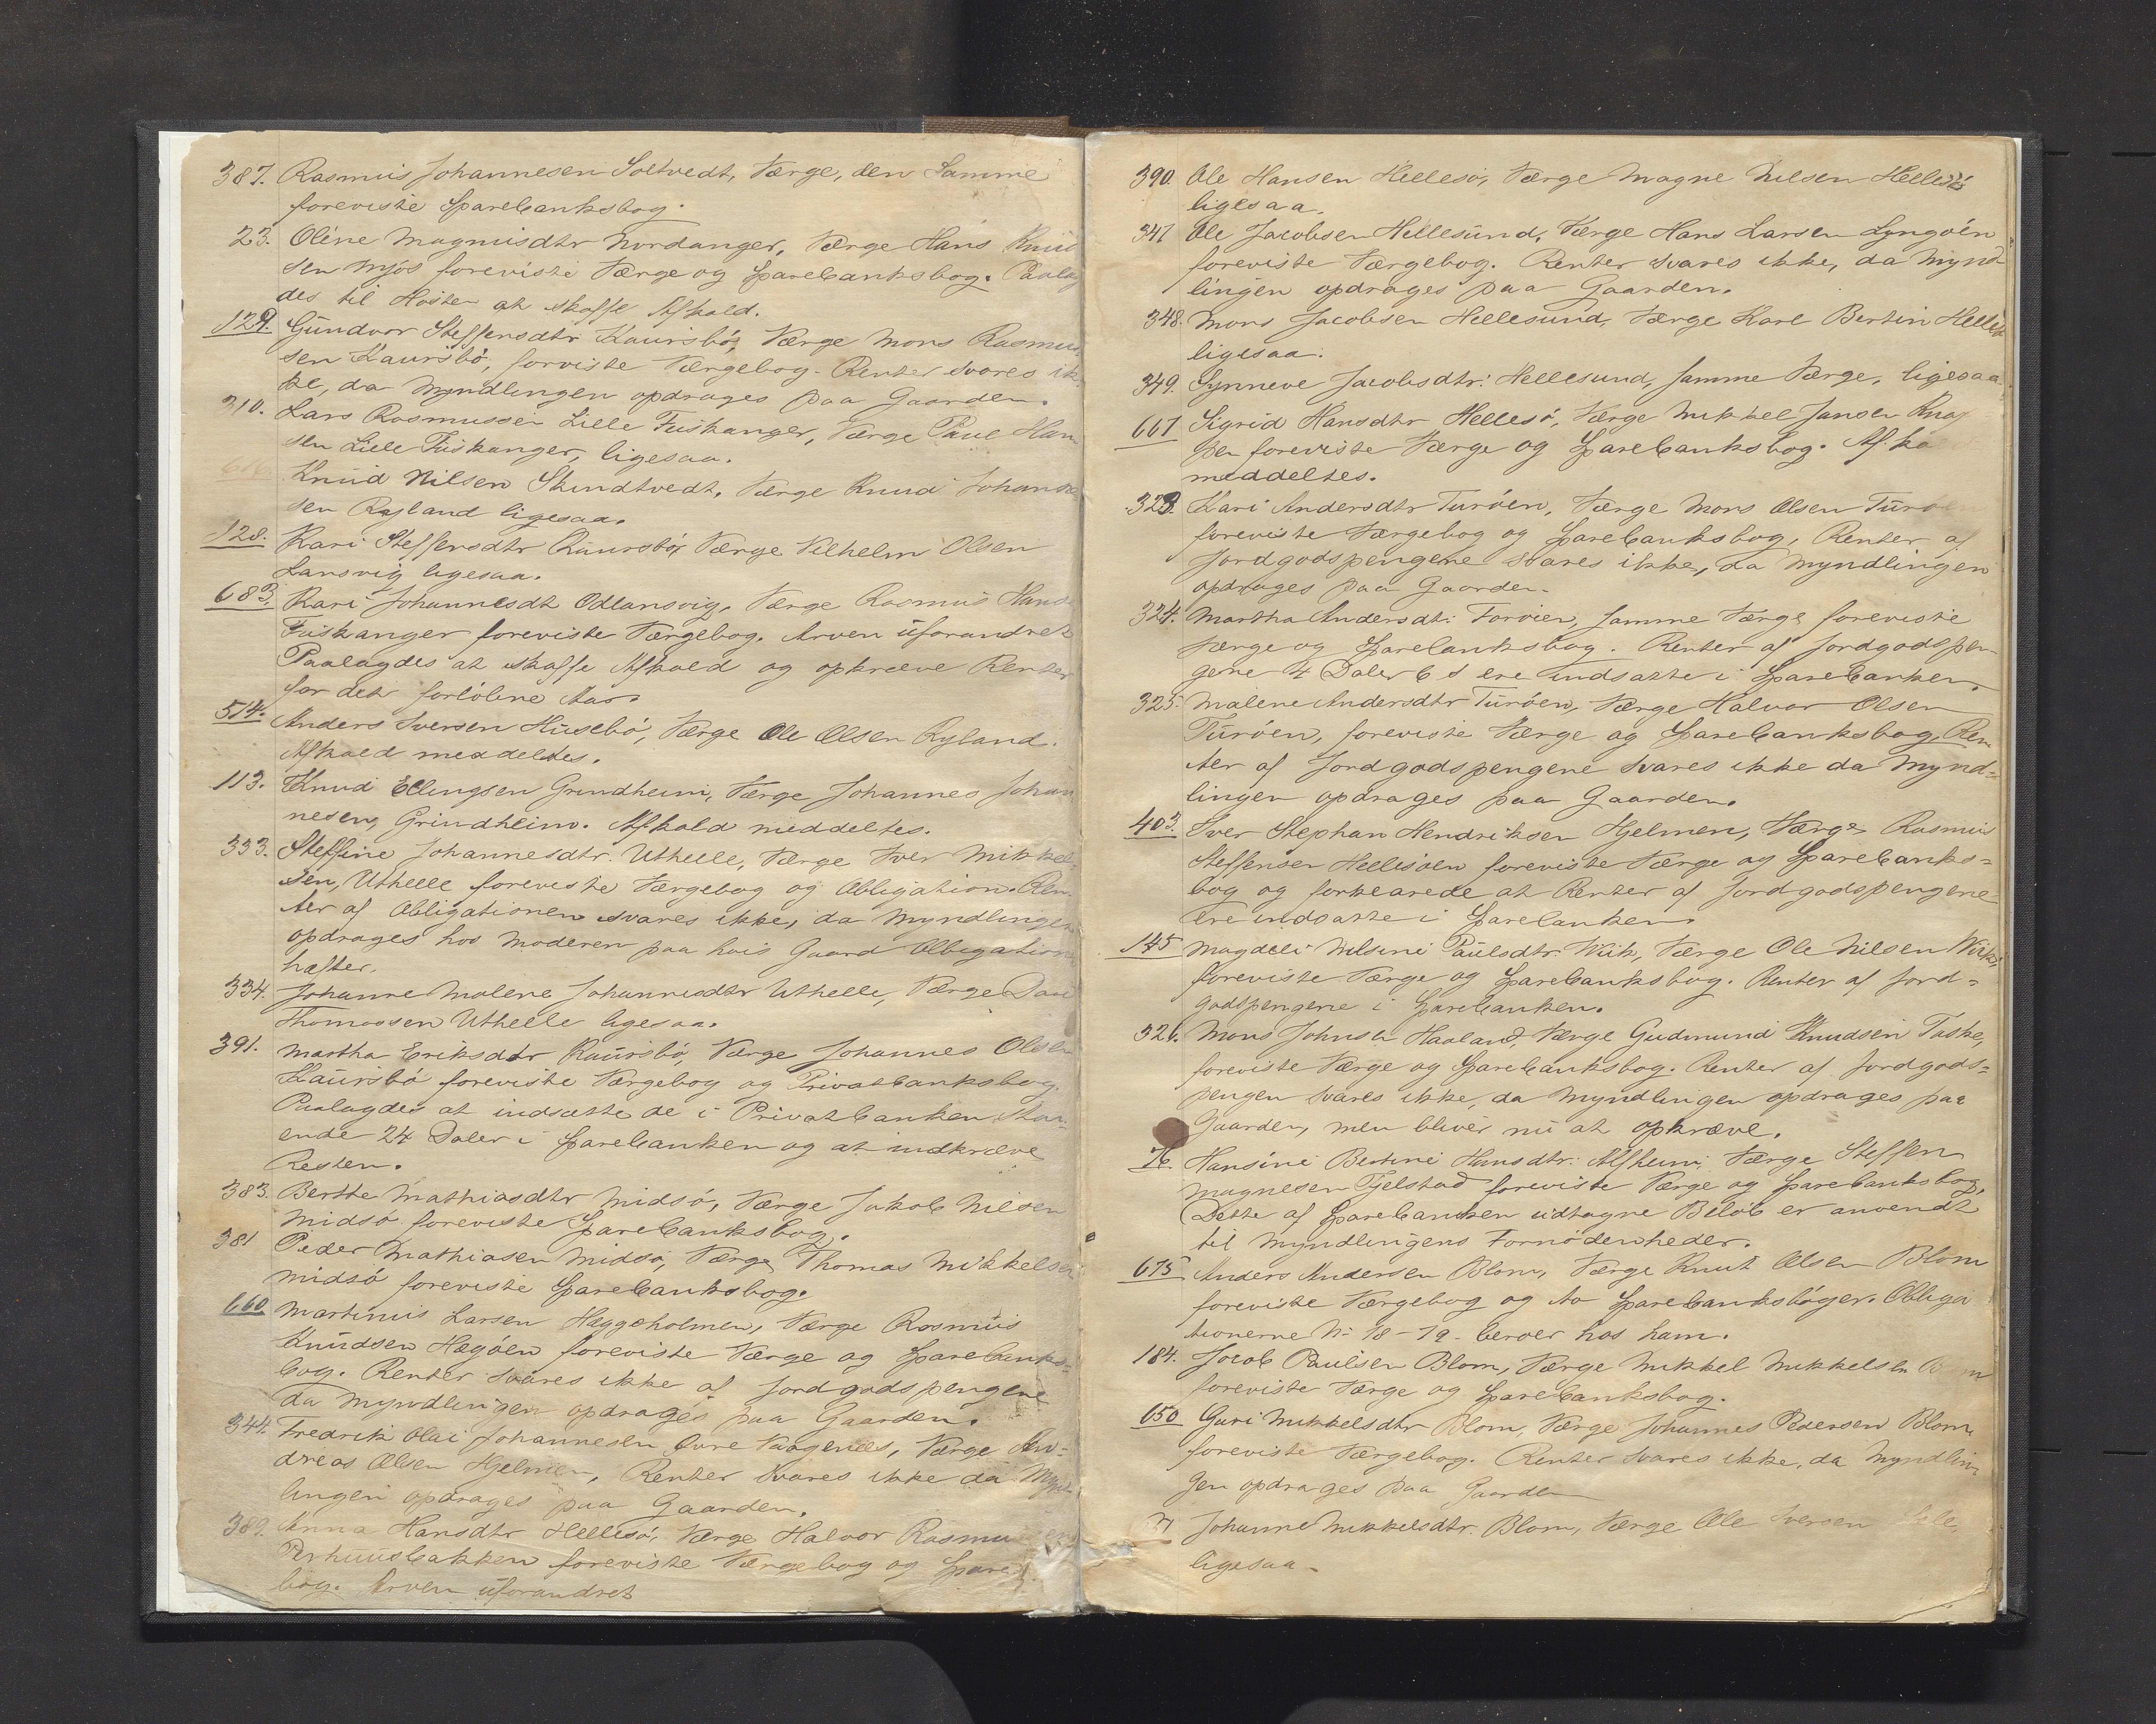 387. Rasmus Johannesen Soltvedt, Værge, den Samme
foreviste Sparebanksbog.
23. Oline Magnusdtr Nordanger, Værge Hans Knud
sen Mjøs foreviste Værge og Sparebanksbog. Paalag
des til Høsten at skaffe Afkald.
129. Gundvor Steffensdtr Kaursbø, Værge Mons Rasmus
sen Kaursbø, forviste Værgebog. Renter svares ik
ke, da Myndlingen opdrages paa Gaarden.
310. Lars Rasmussen Lille Fuskanger, Værge Paul Han
sen Lille Fuskanger, ligesaa.
616. Knud Nilsen Skindtvedt, Værge Knud Johanne
sen Ryland ligesaa.
128. Kari Steffensdtr Kaursbø, Værge Vilhelm Olsen
Lansvig ligesaa.
683. Kari Johannesdt Odlansvig, Værge Rasmus Hans
Fuskanger foreviste Værgebog. Arven uforandret
Paalagdes at skaffe Afkald og opkræve Renter
for det forløbne Aar.
514. Anders Iversen Husebø, Værge Ole Olsen Ryland.
Afkald meddeltes.
113. Knud Ellingsen Grindheim, Værge Johannes Johan
nesen, Grindheim. Afkald meddeltes.
333. Steffine Johannesdtr. Uthelle, Værge Iver Mikkel
sen, Uthelle foreviste Værgebog og Obligation. Ren
ter af Obligationen svares ikke, da Myndlingen
opdrages hos Moderen paa hvis Gaard Obligation
hæfter.
334. Johanne Malene Johannesdtr Uthelle, Værge
Thomassen Uthelle ligesaa.
391. Martha Eriksdtr Kaursbø, Værge Johannes Olsen
Kaursbø foreviste Værgebog og Privatbanksbog.
Paalagdes at indsætte de i Privatbanken staa
ende 24 Daler i Sparebanken og at indkræve
Resten.
383. Berthe Mathiasdtr Midsø, Værge Jakob Nilsen
Midsø foreviste Sparebanksbog.
381 Peder Mathiasen Midsø, Værge Thomas Mikkelsen
Midsø foreviste Sparebanksbog.
660 Martinus Larsen Hæggøholmen, Værge Rasmus
Knudsen Hægøen foreviste Værge og Sparebanks-
bog. Renter svares ikke af Jordgodspengene
da Myndlingen opdrages paa Gaarden.
344. Fredrik Olai Johannesen Øvre Vaagenes, Værge An-
dreas Olsen Hjelmen, Renter svares ikke da Mynd
lingen opdrages paa Gaarden.
389. Anna Hansdtr Hellesø, Værge Halvor Rasmussen
Perhuusbakken foreviste Værgebog og Spare
bog. Arven uforandret
390. Ole Hansen Hellesø, Værge Magne Nilsen Hellesø
ligesaa.
347 Ole Jacobsen Hellesund, Værge Hans Larsen Lyngøen
foreviste Værgebog. Renter svares ikke, da Mynd
lingen opdrages paa Gaarden.
348. Mons Jacobsen Hellesund, Værge Karl Bertin Helles
ligesaa.
349. Synneve Jacobsdtr: Hellesund, samme Værge, ligesaa
667 Sigrid Hansdtr Hellesø, Værge Mikkel Jansen Knap
pen foreviste Værge og Sparebanksbog. Afka
meddeltes.
323. Kari Andersdtr Turøen, Værge Mons Olsen Turøen
foreviste Værgebog og Sparebanksbog, Renter af
Jordgodspengene svares ikke, da Myndlingen
opdrages paa Gaarden.
324. Martha Andersdt: Torøien, samme Værge foreviste
Værge og Sparebanksbog. Renter af Jordgodspen
gene 4 Daler 6 s ere indsatte i Sparebanken.
325. Malene Andersdtr Turøen, Værge Halvor Olsen
Turøen, foreviste Værge og Sparebanksbog, Ren
ter af Jordgodspengene svares ikke da Mynd-
lingen opdrages paa Gaarden.
403. Iver Stephan Hendriksen Hjelmen, Værge Rasmus
Steffensen Hellesøen foreviste Værge og Sparebanks-
bog og forklarede at Renter af Jordgodspengene
ere indsatte i Sparebanken.
145 Magdeli Nilsine Paulsdtr. Wiik, Værge Ole Nilsen Wiik,
foreviste Værge og Sparebanksbog. Renter af Jord-
godspengene i Sparebanken.
326. Mons Johnsen Haaland, Værge Gudmund Knudsen Toske,
foreviste Værge og Sparebanksbog. Renter af Jordgods-
pengen svares ikke, da Myndlingen opdrages paa
Gaarden, men bliver nu at opkræve.
76. Hansine Bertine Hansdtr: Alfheim Værge Steffen
Magnesen Tjelstad foreviste Værge og Sparebanksbog,
Dette af Sparebanken udtagne Beløb er anvendt
til Myndlingens Fornødenheder.
675 Anders Andersen Blom, Værge Knut Olsen Blom
foreviste Værgebog og to Sparebanksbøger. Obliga
tionerne No 18-19- beroer hos ham.
184. Jacob Paulsen Blom, Værge Mikkel Mikkelsen Blom
foreviste Værge og Sparebanksbog.
650 Guri Mikkelsdtr Blom, Værge Johannes Pedersen Blom,
foreviste Værgebog. Renter svares ikke, da Myndlin
gen opdrages paa Gaarden
31 Johanne Mikkelsdtr. Blom, Værge Ole Iversen
ligesaa.